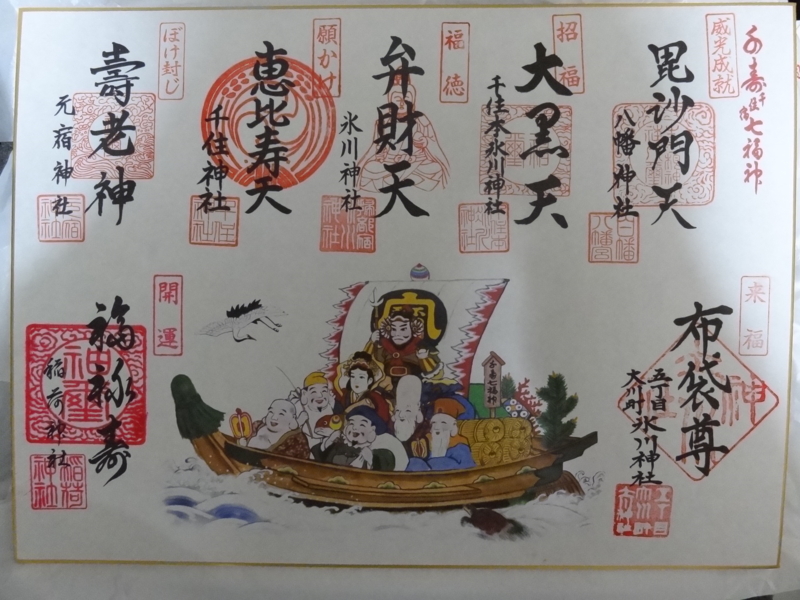 千寿七福神
威光成就
毘沙門天
八幡神社
八幡宮
招福
大黒天
千住本氷川神社
福徳
弁財天
氷川神社
願かけ
恵比寿天
千住神社
ぼけ封じ
壽老神
元宿神社
来福
布袋尊
五丁目
大川町氷川神社
神
千寿七福神
宝
開運
福禄寿
稲荷神社
稲荷
神社